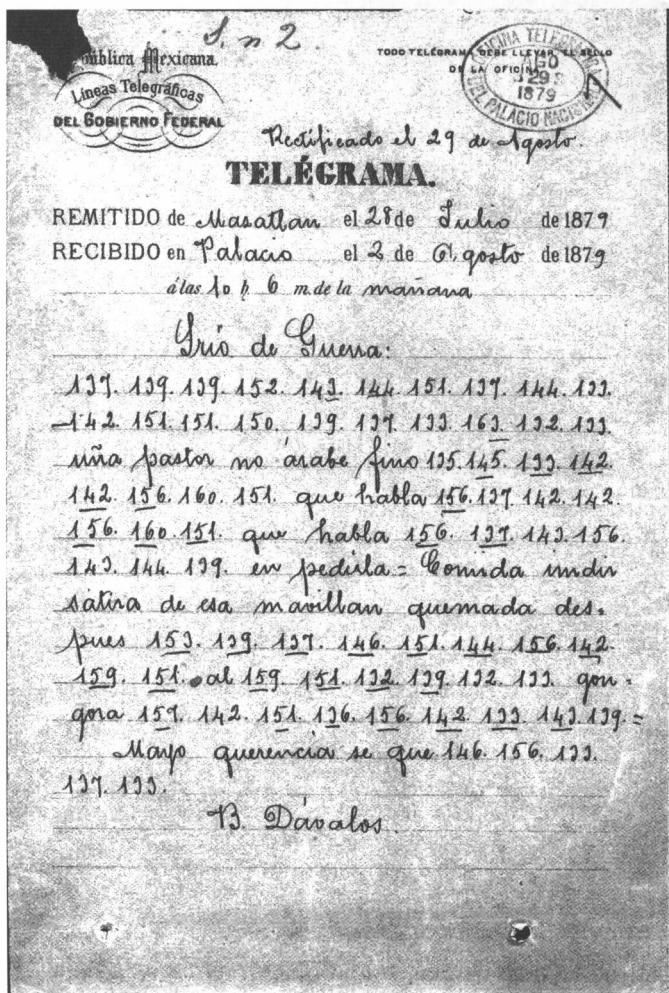 S. n 2.
República Mexicana.
Líneas Telegráficas
DEL GOBIERNO FEDERAL
TODO TELÉGRAMA DEBE LLEVAR EL SELLO
DE LA OFICINA
OFICINA TELEGRAFICA
AGO
29
1879
DEL PALACIO NACIONAL
Rectificado el 29 de Agosto.
TELÉGRAMA.
REMITIDO de Masatlan el 28 de Julio de 1879
RECIBIDO en Palacio el 2 de Agosto de 1879
á las 10 h 6 m. de la mañana
Srio de Guerra:
137. 139. 139. 152. 143. 144. 151. 137. 144. 133.
142. 151. 151. 150. 139. 137. 133. 163. 132. 133.
uña pastor no árabe fino 135. 145. 133. 142.
142. 156. 160. 151. que habla 156. 137. 142. 142.
156. 160. 151. que habla 156. 137. 143. 156.
143. 144. 139. en pedirla = Comida undir
satira de esa mavillan quemada des-
pues 153. 139. 137. 146. 151. 144. 156. 142.
159. 151. al 159. 151. 132. 139. 132. 133. gon-
gora 157. 142. 151. 136. 156. 142. 133. 143. 139. =
Mayo querencia se que 146. 156. 133.
137. 133.
B. Dávalos.